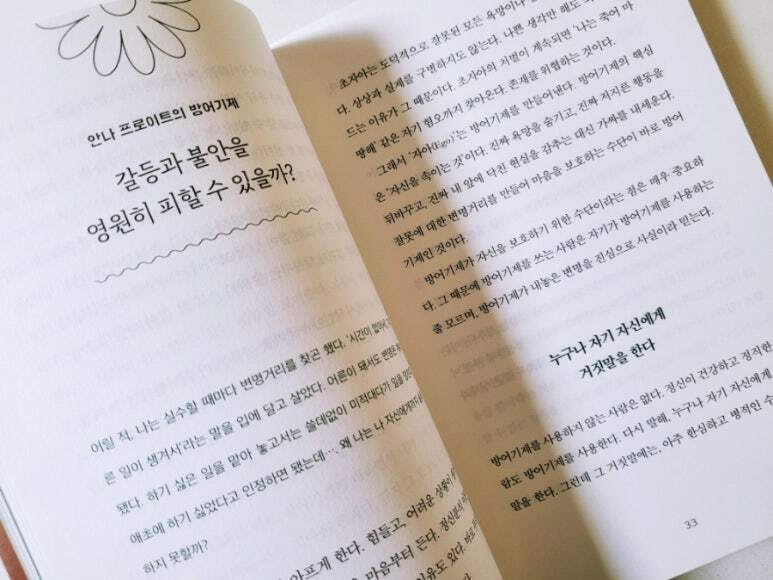 안나 프로이트의 방어기제
갈등과 불안을
영원히 피할 수 있을까?
어릴 적, 나는 실수할 때마다 변명거리를 찾곤 했다. '시간이 없어서
른 일이 생겨서'라는 말을 입에 달고 살았다. 어른이 돼서도 변명은
됐다. 하기 싫은 일을 맡아 놓고서는 쓸데없이 미적대다가 일을
애초에 하기 싫었다고 인정하면 됐는데…. 왜 나는 나 자신에게까지
하지 못할까?
아프게 한다. 힘들고, 어려운 상황이
마음부터 든다. 정신분석
이유도 있다.
초자아는 도덕적으로 잘못된 모든 욕망이나
다. 상상과 실제를 구별하지도 않는다. 나쁜 생각만 해도
드는 이유가 그 때문이다. 초자아의 처벌이 계속되면 '나는 죽어 마
땅해' 같은 자기 혐오까지 찾아온다. 존재를 위협하는 것이다.
그래서 '자아(Ego)'는 방어기제를 만들어낸다. 방어기제의 핵심
은 '자신을 속이는 것'이다. 진짜 욕망을 숨기고, 진짜 저지른 행동을
뒤바꾸고, 진짜 내 앞에 닥친 현실을 감추는 대신 가짜를 내세운다.
잘못에 대한 변명거리를 만들어 마음을 보호하는 수단이 바로 방어
기제인 것이다.
방어기제가 자신을 보호하기 위한 수단이라는 점은 매우 중요하
다. 그 때문에 방어기제를 쓰는 사람은 자기가 방어기제를 사용하는
줄 모르며, 방어기제가 내놓은 변명을 진심으로 사실이라 믿는다.
누구나 자기 자신에게
거짓말을 한다
방어기제를 사용하지 않는 사람은 없다. 정신이 건강하고 정직한
람도 방어기제를 사용한다. 다시 말해, 누구나 자기 자신에게
말을 한다. 그런데 그 거짓말에는, 아주 한심하고 병적인 수
33